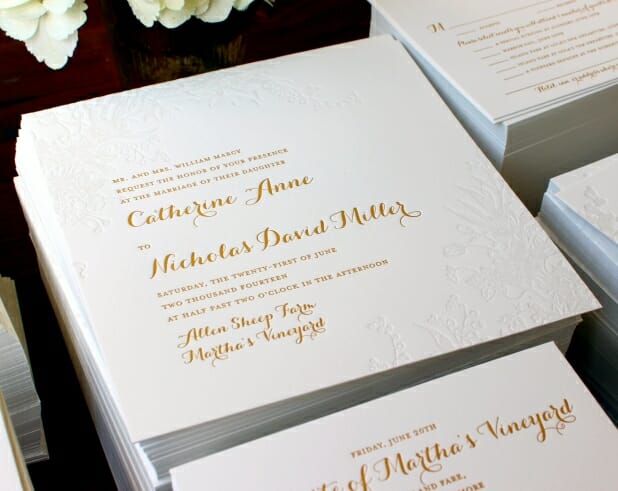 MR. AND MRS. WILLIAM MARCY
REQUEST THE HONOR OF YOUR PRESENCE
AT THE MARRIAGE OF THEIR DAUGHTER
Catherine Anne
TO
Nicholas David Miller
SATURDAY, THE TWENTY-FIRST OF JUNE
TWO THOUSAND FOURTEEN
AT HALF PAST TWO O'CLOCK IN THE AFTERNOON
Allen Sheep Farm
Martha's Vineyard
FRIDAY, JUNE 20TH
of Martha's Vineyard